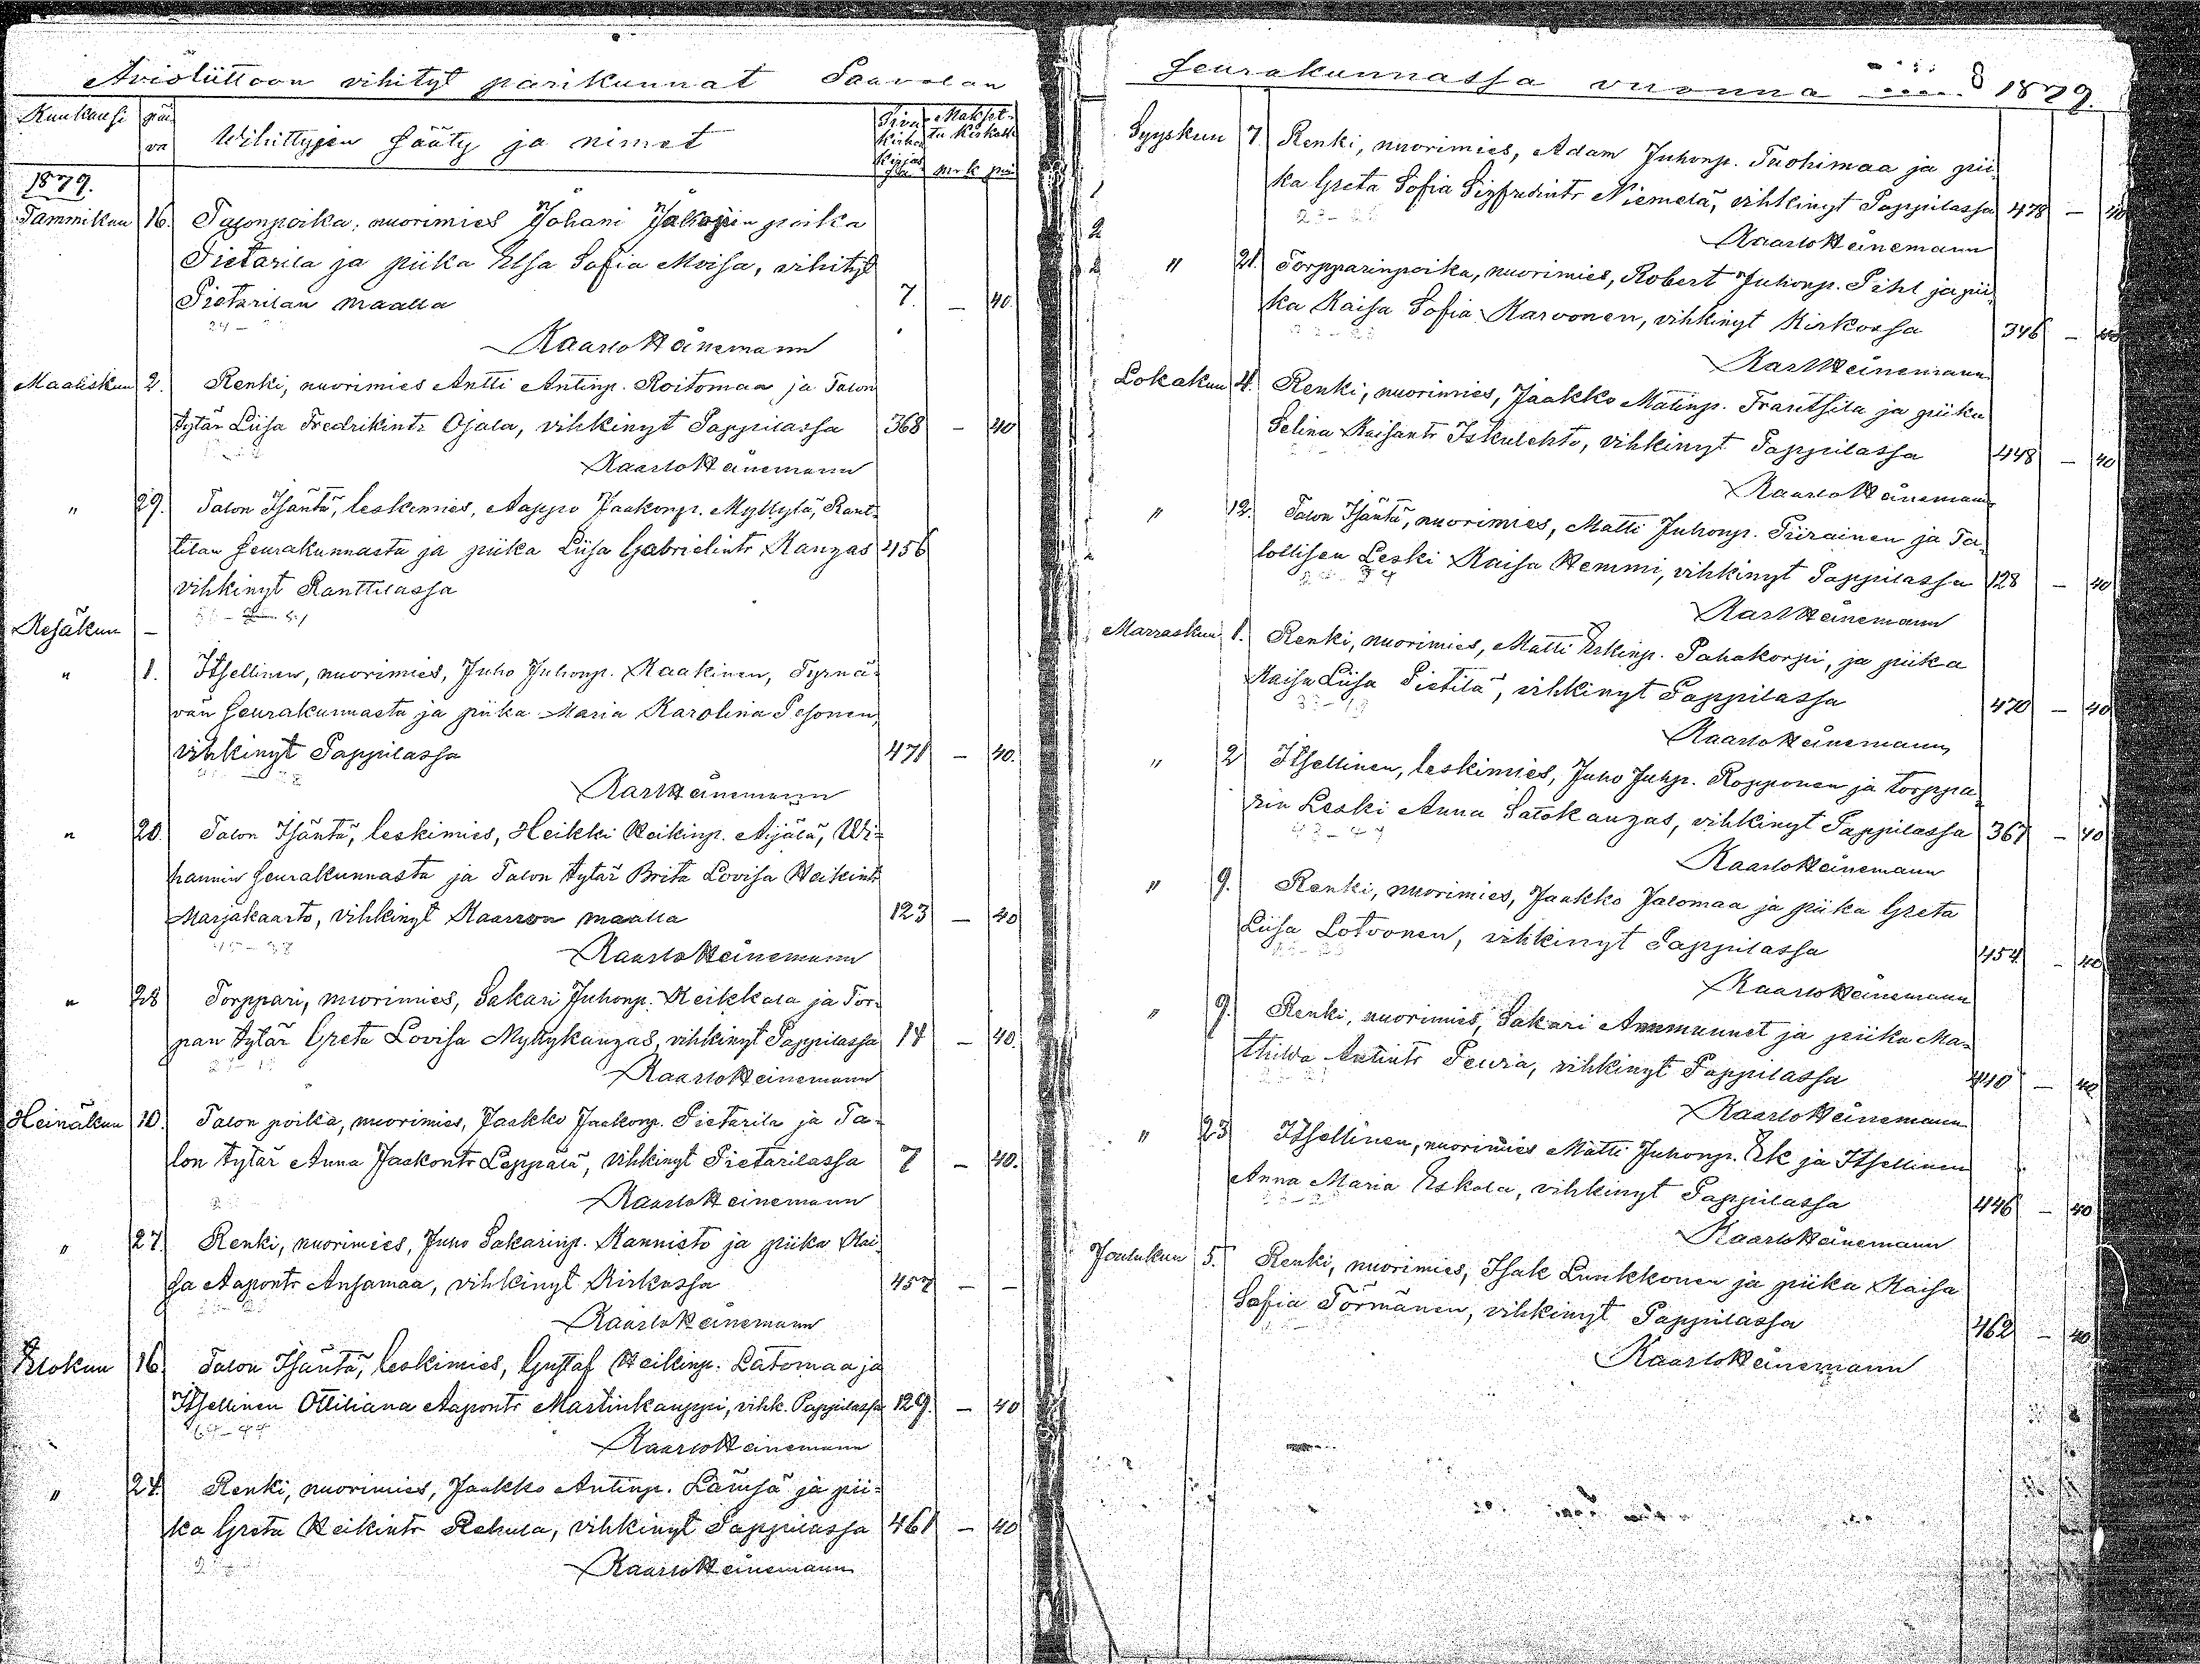 Avioliittoon vihityt parikunnat Saavolan
Kuukausi päivä Wihittyjen sääty ja nimet Sivu Kirkon Kirjassa Maksettu Kirkolle mrk pni
1879.
Tammikuu 16. Talonpoika, nuorimies Johani Jakopin poika
Pietarila ja piika Elsa Sofia Moisa, vihityt
Pietarilan maalla 7. — 40.
Kaarlo Heinemann
Maaliskuu 2. Renki, nuorimies Antti Antinp. Roitomaa ja Talon
tytär Liisa Fredrikintr Ojala, vihkinyt Pappilassa 368 — 40
Kaarlo Heinemann
" 29. Talon Isäntä, leskimies, Aappo Jaakonp. Myllylä, Rant-
tilan seurakunnasta ja piika Liisa Gabrielintr Kangas 456
vihkinyt Ranttilassa
Kesäkuu —
" 1. Itsellinen, nuorimies, Juho Juhonp. Kaakinen, Tyrnä-
vän seurakunnasta ja piika Maria Karolina Pesonen,
vihkinyt Pappilassa 471 — 40.
Karl Heinemann
" 20. Talon Isäntä, leskimies, Heikki Heikinp. Äijälä, Wi-
hannin seurakunnasta ja Talon tytär Brita Lovisa Heikintr
Marjakaarto, vihkinyt Kaarron maalla 123 — 40
Kaarlo Heinemann
" 28 Torppari, nuorimies, Sakari Juhonp. Heikkala ja Tor-
pan tytär Greta Lovisa Myllykangas, vihkinyt Pappilassa 14 — 40.
Kaarlo Heinemann
Heinäkuu 10. Talon poika, nuorimies, Jaakko Jaakonp. Pietarila ja Ta-
lon tytär Anna Jaakontr Leppälä, vihkinyt Pietarilassa 7 — 40.
Kaarlo Heinemann
" 27 Renki, nuorimies, Juho Sakarinp. Kannisto ja piika Kai-
sa Aapontr Ansamaa, vihkinyt Kirkossa 457 — —
Kaarlo Heinemann
Elokuu 16. Talon Isäntä, leskimies, Gustaf Heikinp. Latomaa ja
Itsellinen Ottiliana Aapontr Martinkauppi, vihk. Pappilassa 129. — 40
Kaarlo Heinemann
" 24. Renki, nuorimies, Jaakko Antinp. Lämsä ja pii-
ka Greta Heikintr Rekula, vihkinyt Pappilassa 461 — 40
Kaarlo Heinemann
Seurakunnassa vuonna 1879.
Syyskuu 7. Renki, nuorimies, Adam Juhonp. Tuohimaa ja pii-
ka Greta Sofia Sigfredintr Niemelä, vihkinyt Pappilassa 478 — 40
Kaarlo Heinemann
" 21. Torpparinpoika, nuorimies, Robert Juhonp. Pihl ja pii-
ka Kaisa Sofia Karvonen, vihkinyt Kirkossa 346 —
Karl Heinemann
Lokakuu 4. Renki, nuorimies, Jaakko Matinp. Frantsila ja piika
Selina Kaisantr Iskulehto, vihkinyt Pappilassa 448 — 40
Kaarlo Heinemann
" 12. Talon Isäntä, nuorimies, Matti Juhonp. Piirainen ja Ta-
lollisen Leski Kaisa Hemmi, vihkinyt Pappilassa 128 — 40
Karl Heinemann
Marraskuu 1. Renki, nuorimies, Matti Erkinp. Pahakorpi, ja piika
Kaisa Liisa Pietilä, vihkinyt Pappilassa 470 — 40
Kaarlo Heinemann
" 2 Itsellinen, leskimies, Juho Juhp. Ropponen ja torppa-
rin Leski Anna Salokangas, vihkinyt Pappilassa 367 — 40
Kaarlo Heinemann
" 9. Renki, nuorimies, Jaakko Jalomaa ja piika Greta
Liisa Lotvonen, vihkinyt Pappilassa 454 — 40
Kaarlo Heinemann
" 9. Renki, nuorimies, Sakari Ammunnet ja piika Ma-
thilda Antintr Peura, vihkinyt Pappilassa 440 — 40
Kaarlo Heinemann
" 23 Itsellinen, nuorimies Matti Juhonp. Ek ja Itsellinen
Anna Maria Eskola, vihkinyt Pappilassa 446 — 40
Kaarlo Heinemann
Joulukuu 5. Renki, nuorimies, Isak Lunkkonen ja piika Kaisa
Sofia Törmänen, vihkinyt Pappilassa 462 — 40
Kaarlo Heinemann